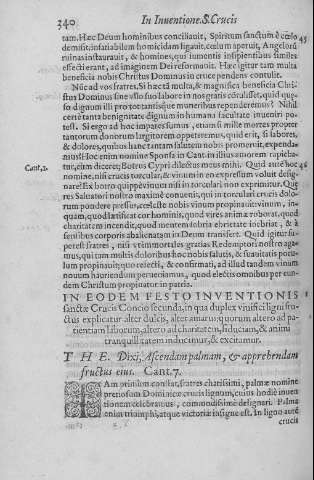 340 In Inventione. S. Crucis
tam. Hæc Deum hominibus conciliauit, Spiritum sanctum è cœlo 45
demisit, infatiabilem homicidam ligauit, cælum aperuit, Angelorũ
ruinas instaurauit, & homines, qui iumentis insipientibus similes
effecti erant, ad imaginem Dei reformauit. Hæc igitur tam multa
beneficia nobis Christus Dominus in cruce pendens contulit.
Nũc ad vos fratres. Si hæc tã multa, & magnifica beneficia Chri-
stus Dominus sine
so dignum illi pro tot tantisque muneribus rependeremus? Nihil
certè tanta benignitate dignum in humana facultate inueniri po-
test. Si ergo ad hoc impares sumus, etiamsi mille mortes propter
tantorum donorum largitorem oppeteremus, quid erit, si labores,
& dolores, quibus hanc tantam salutem nobis promeruit, expenda-
mus? Hoc enim nomine Sponsa in Cant. in illius amorem rapieba-
Cant. 1. tur, cùm diceret; Botrus Cypri dilectus meus mihi. Quid aute hoc 46
nomine, nisi crucis torcular, & vinum in eo expressum voluit desig-
nare? six botro quippè vinum nisi in torculari non exprimitur. Quæ
res Saluatori nostro maximè conuenit, qui in torculari crucis dolo-
rum pondere pressus, cœleste nobis vinum propinauit: vinum, in-
quam, quod lætificat cor hominis, quod vires animæ roborat, quod
charitatem incendit, quod mentem sobria ebrietate inebriat, & à
sensibus corporis abalienatam in Deum transfert. Quid igitur su-
perest fratres, nisi vt immortales gratias Redemptori nostro aga-
mus, qui tam multis doloribus hoc nobis salutis, & suauitatis pocu-
lum propinauit, quo refecti, & confirmati, ad illud tandem vinum
nouum hauriendum perueniamus, quod electis omnibus per eun-
dem Christum propinatur in patria.
IN EODEM FESTO INVENTIONIS 1
sanctæ Crucis Concio secunda, in qua duplex vivifici ligni fru-
ctus explicatur alter dulcis, alter amarus, quorum altero ad pa-
tientiam laborum, altero ad charitatem, fiduciam, & animi
tranquillitatem inducimur, & excitamur.
THE. Dixi, Ascendam palmam, & apprehendam
fructus eius. Cant. 7.
IAm primùm constat, fratres charissimi, palmæ nomine
pretiosum Dominicæ crucis lignum, cuius hodiè inuen
tionem celebramus, commodissimè designari. Palma
enim triumphi, atque victoriæ insigne est. In ligno autē
crucis